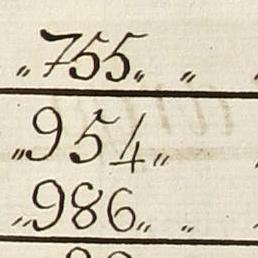 „755„ „
„954„
„986„ „